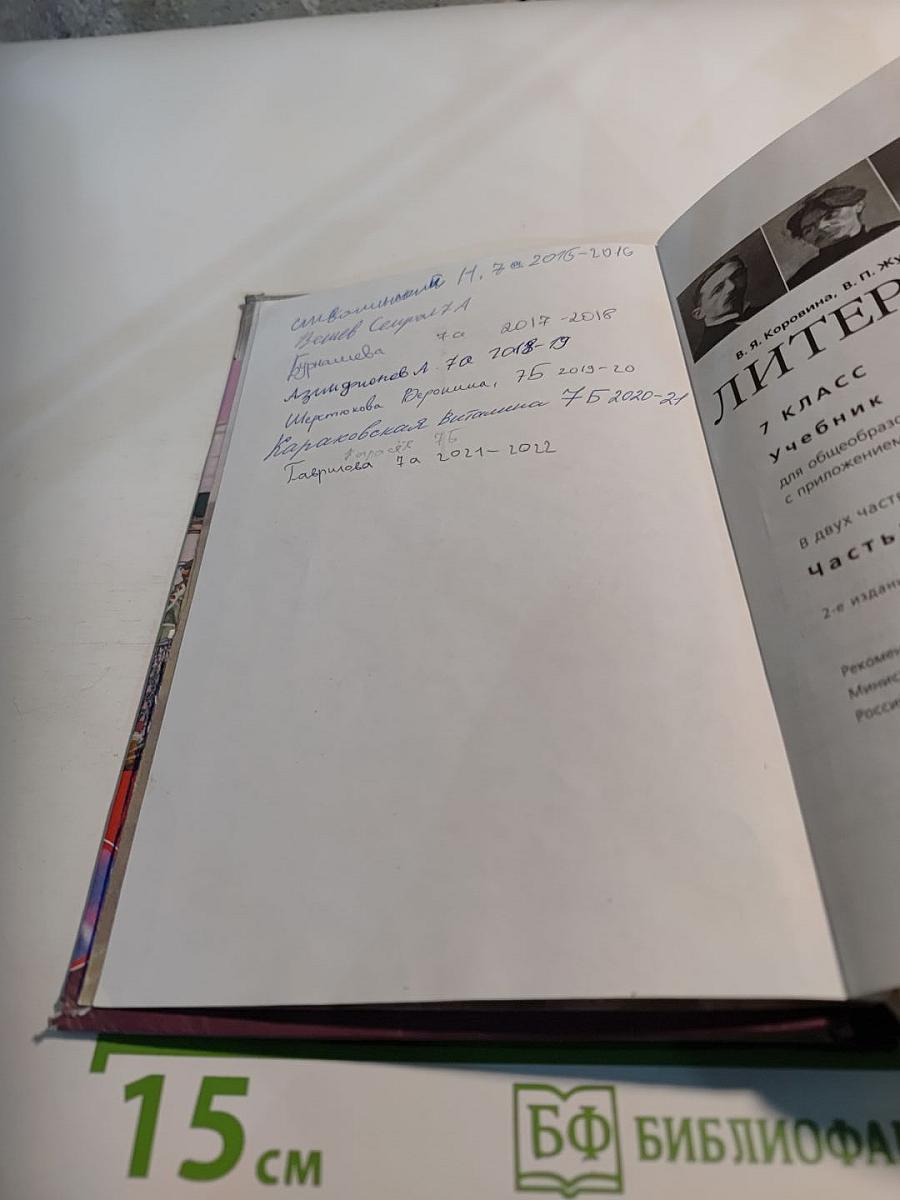 Н. 7а 2015-2016
7А
Бурнашева 7а 2017-2018
А. 7а 2018-19
Шерстюкова Вероника, 7Б 2019-20
Караковская Виталина 7Б 2020-21
Карасёв 7Б
Гаврилова 7а 2021-2022
В. Я. Коровина, В. П. Жу
ЛИТЕР
7 КЛАСС
Учебник
для общеобразо
с приложением
В двух частя
Часть
2-е издан
Рекомен
Минис
Росси
15 см
БФ БИБЛИОФА